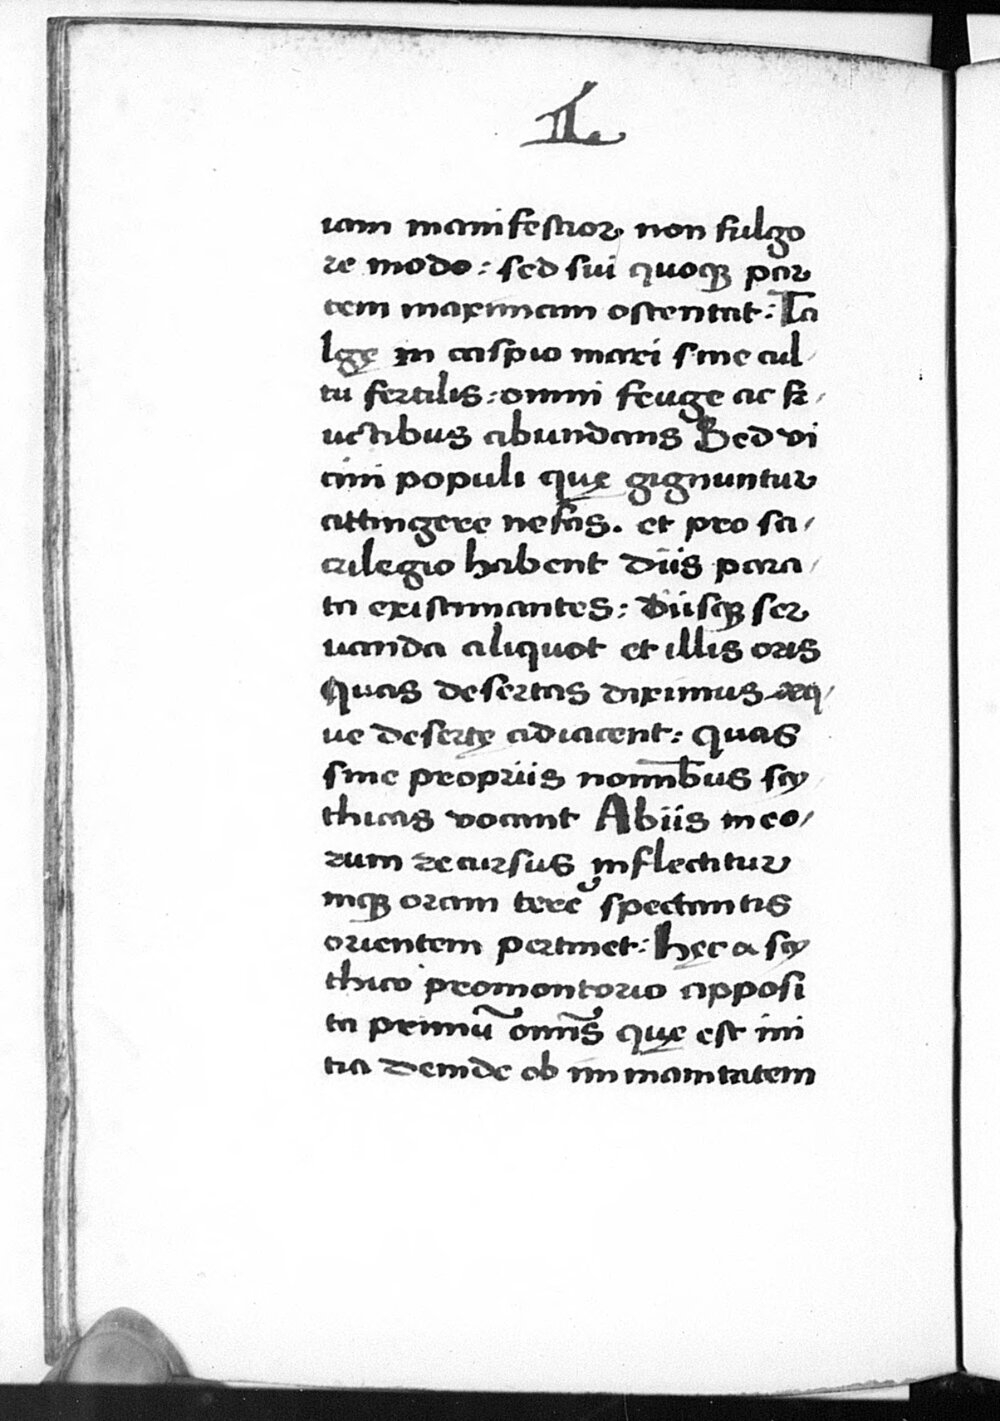 II.
iam manifestior non fulgo
re modo: sed sui quoqꝫ par
tem maximam ostentat: Ta
lgę in caspio mari sine cul
tu fertilis: omni feuge ac fr
uctibus abundans Sed vi
cini populi quę gignuntur
attingere nefas. et pro sa
crilegio habent diis para
ta existimantes: diisqꝫ ser
uanda aliquot et illis oris
Quas desertas diximus aeq
ue desertę adiacent: quas
sine propriis nominibus scy
thicas vocant Abiis in eo
rum recursus inflectitur
inqꝫ oram terrę spectantis
orientem pertinet: hęc a scy
thico promontorio apposi
ta primū omīs quę est ini
tia deinde ob immanitatem